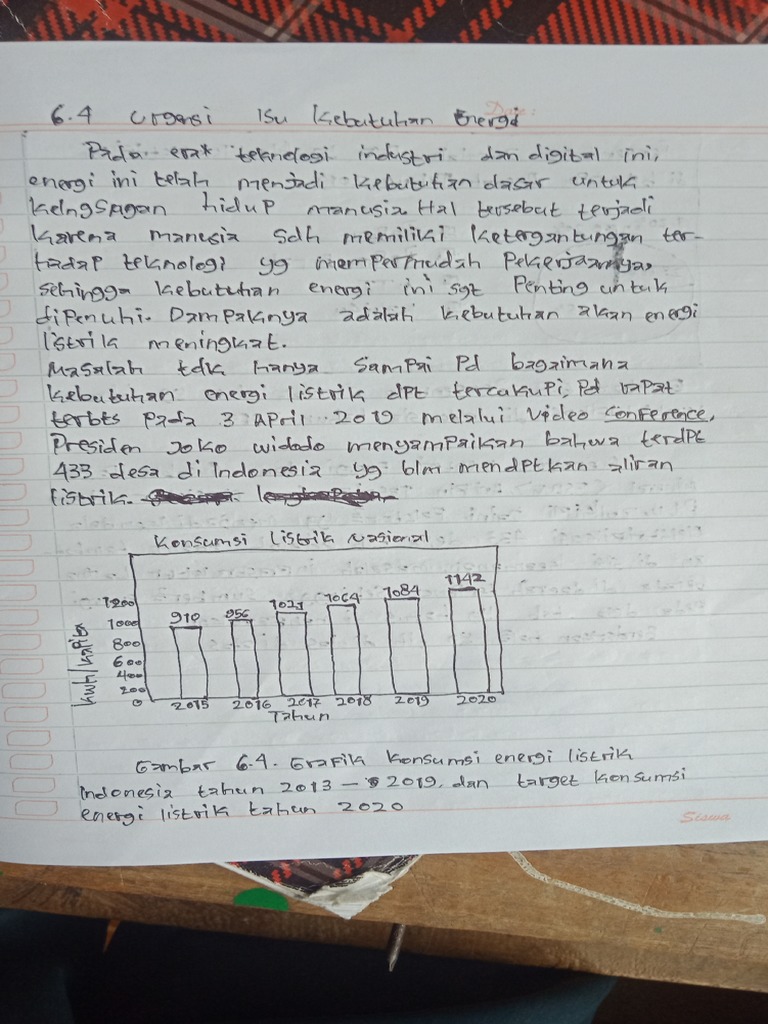 Date:
6.4 Urgensi Isu Kebutuhan Energi
Pada era* teknologi industri dan digital ini,
energi ini telah menjadi kebutuhan dasar untuk
kelngsugan hidup manusia. Hal tersebut terjadi
karena manusia sdh memiliki ketergantungan ter-
hadap teknologi yg mempermudah pekerjaannya,
sehingga kebutuhan energi ini sgt penting untuk
dipenuhi. Dampaknya adalah kebutuhan akan energi
listrik meningkat.
Masalah tdk hanya sampai pd bagaimana
kebutuhan energi listrik dpt tercukupi, pd rapat
terbts pada 3 April 2019 melalui video conference,
Presiden Joko widodo menyampaikan bahwa terdpt
433 desa di Indonesia yg blm mendptkan aliran
listrik.
Konsumsi Listrik Nasional
1142
1084
1064
1021
956
910
1200
1000
800
600
400
200
0
kwh/kapita
2015 2016 2017 2018 2019 2020
Tahun
Gambar 6.4. Grafik konsumsi energi listrik
Indonesia tahun 2013 - 2019, dan target konsumsi
energi listrik tahun 2020
Siswa